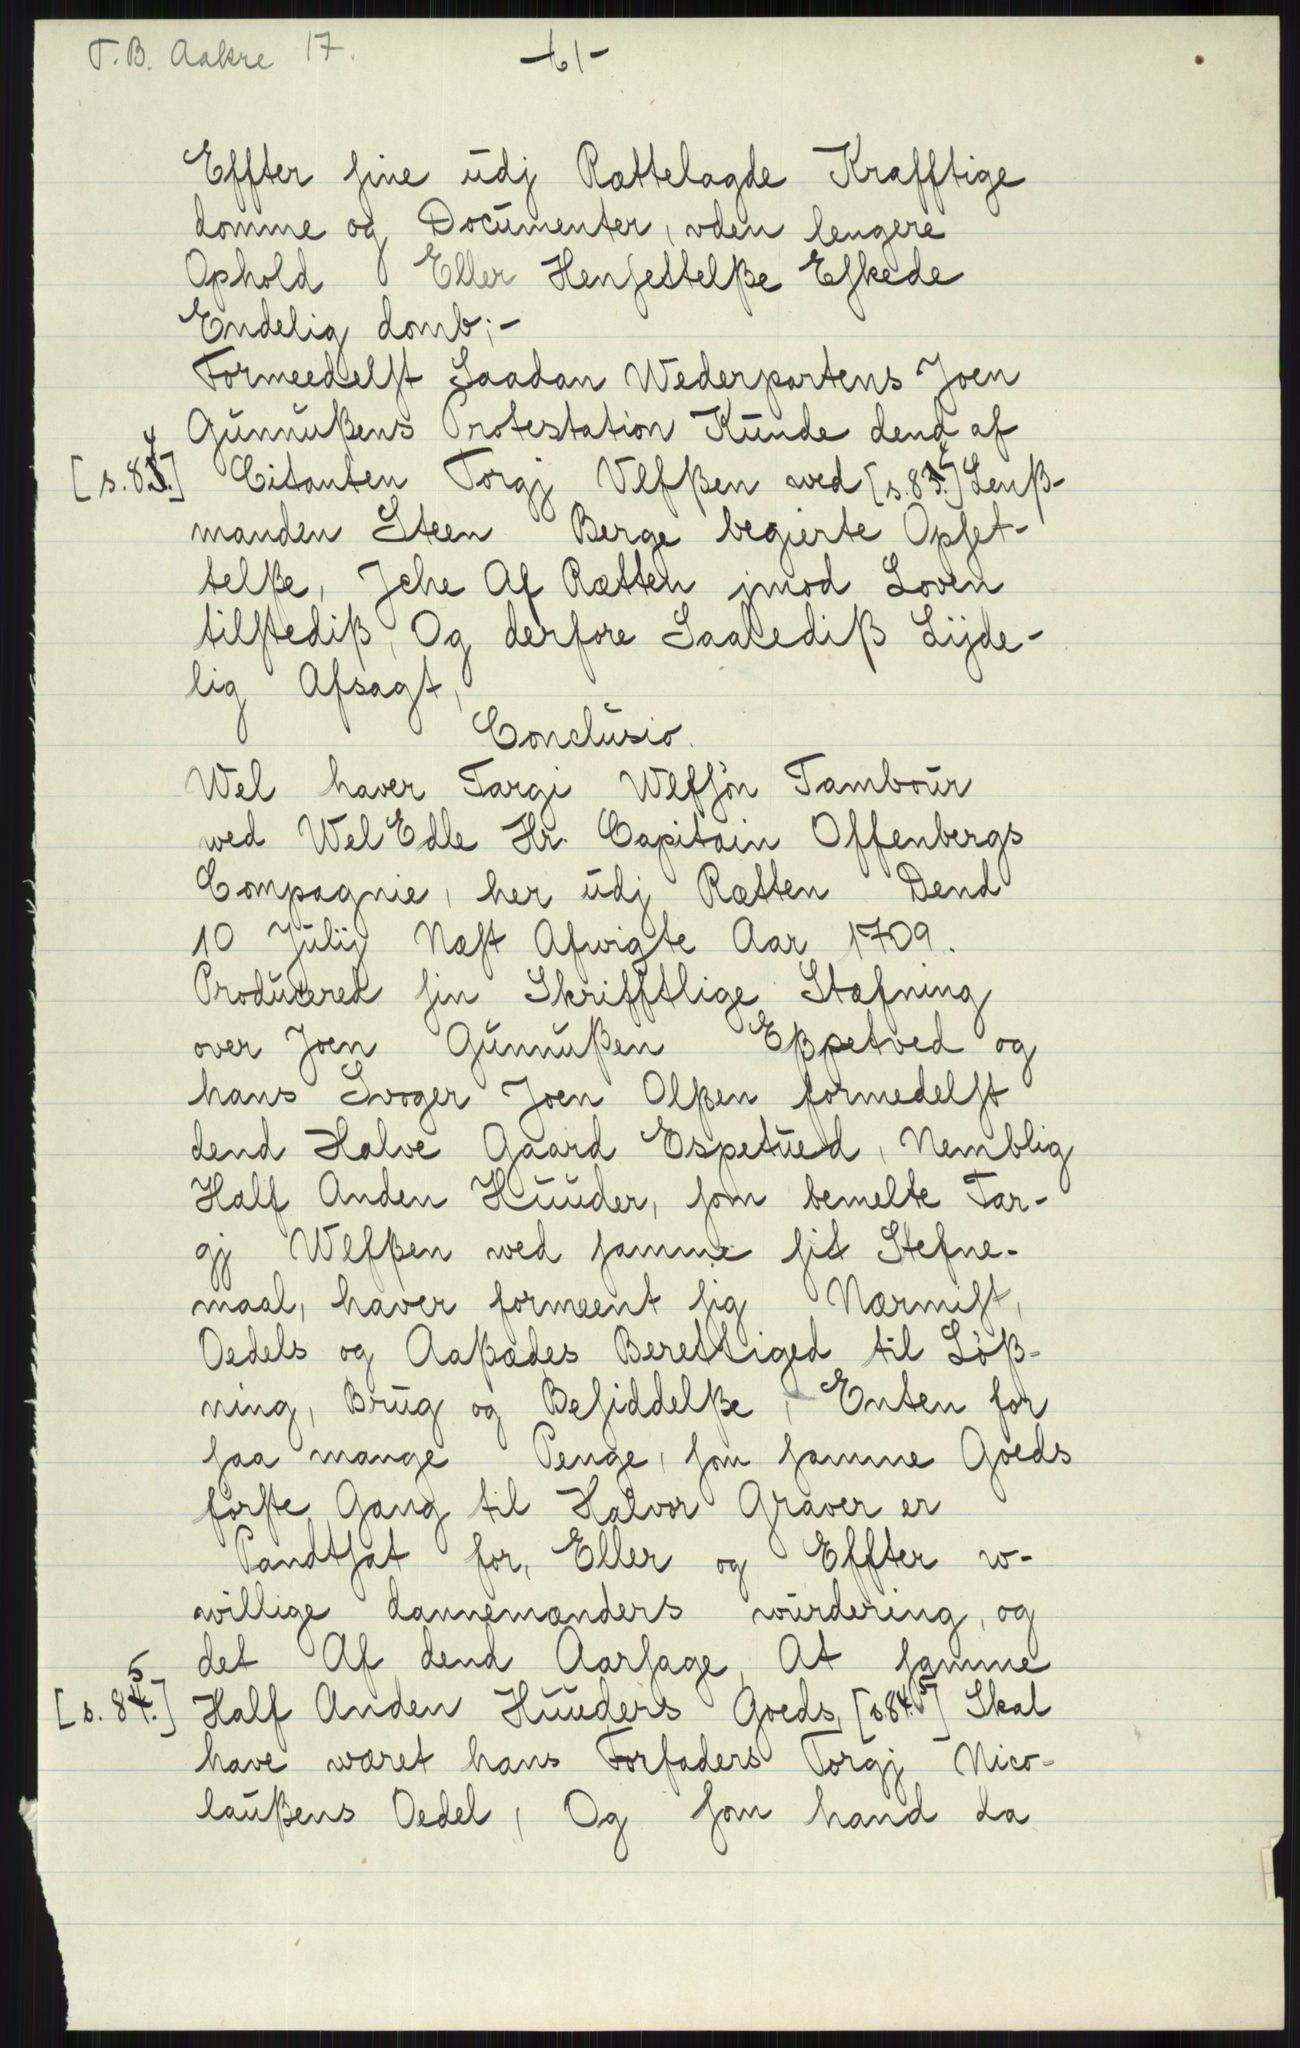 T.B. Aakre 17.
-61-
Effter sine udj Rættelagde Krafftige
domme og Documenter, vden lengere
Ophold Eller Hensettelße Eskede
Endelig domb;-
Formeedelst Saadan Wederpartens Joen
Gunnußens Protestation Kunde dend af
[s. 84.] Citanten Torgj Vlfßen wed [s. 84.] Lenß-
manden Steen Berge begierte Opset-
telße, Jche Af Rætten jmod Loven
tilstediß, Og derfore Saalediß Lijde-
lig Afsagt,
Conclusio.
Wel haver Targi Wlfsøn Tambour
wed WelEdle Hr. Capitain Offenbergs
Compagnie, her udj Rætten Dend
10 Julij Næst Afvigte Aar 1709.
Producered sin Skrifftlige Stæfning
over Joen Gunnußen Eßpetved og
hans Svoger Joen Olßen formedelst
dend Halve Gaard Espetued, Nemblig
Half Anden Huuder, som bemelte Tar-
gj Wlfßen wed samme sit Stefne-
maal, haver formeent sig Nærmist,
Oedels og Aaßædes Berettiged til Løß-
ning, Brug og Besiddelße, Enten for
saa mange Penge, som samme Goeds
første Gang til Halvor Graver er
Pandtsat for, Eller og Effter w-
willige dannemænders wurdering, og
det Af dend Aarsage, At samme
[s. 85.] Half Anden Huuders Goeds, [s. 85] Skal
have wæret hans Forfaders Torgj Nico-
laußens Oedel, Og som hand da